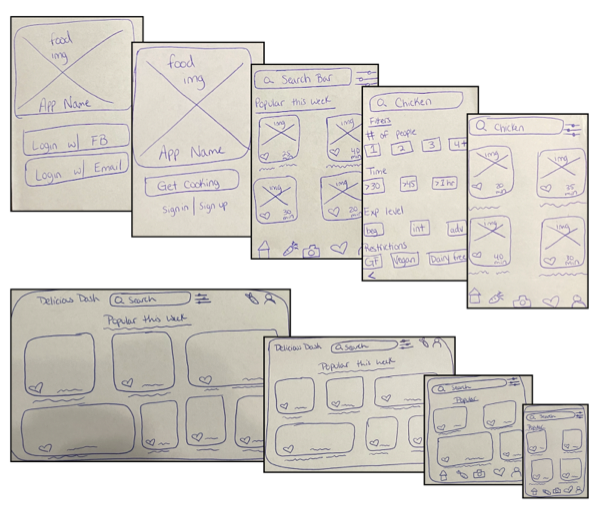 food
img
App Name
Login w/ FB
Login w/ Email
food
img
App Name
Get Cooking
sign in | sign up
Search Bar
Popular this week
img
img
25
40
min
img
img
30
min
20
min
Chicken
Filters
# of people
1 2 3 4+
Time
>30 >45 >1 hr
Exp level
beg int adv
Restrictions
GF Vegan Dairy free
<
Chicken
img
img
20
min
25
min
img
img
40
min
30
min
Delicious Dash
Search
Popular this week
Delicious Dash
Search
Popular this week
Search
Popular
Search
Popular